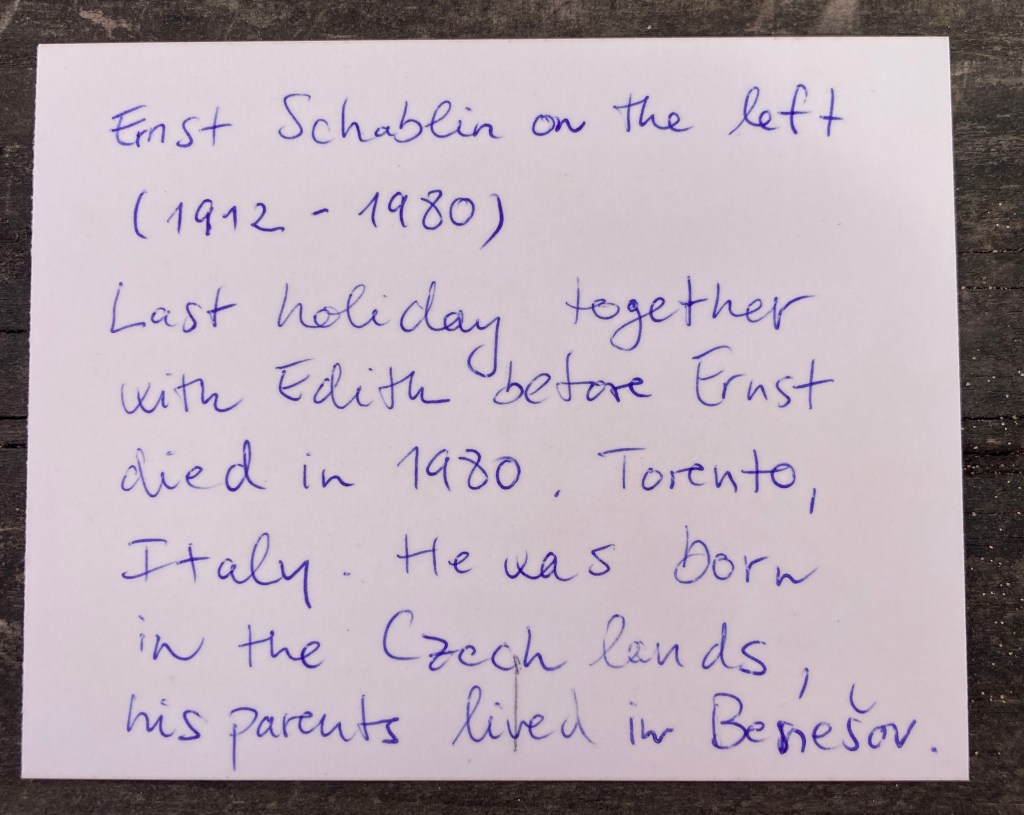 Ernst Schablin on the left
(1912 - 1980)
Last holiday together
with Edith before Ernst
died in 1980. Torento,
Italy. He was born
in the Czech lands,
his parents lived in Benešov.